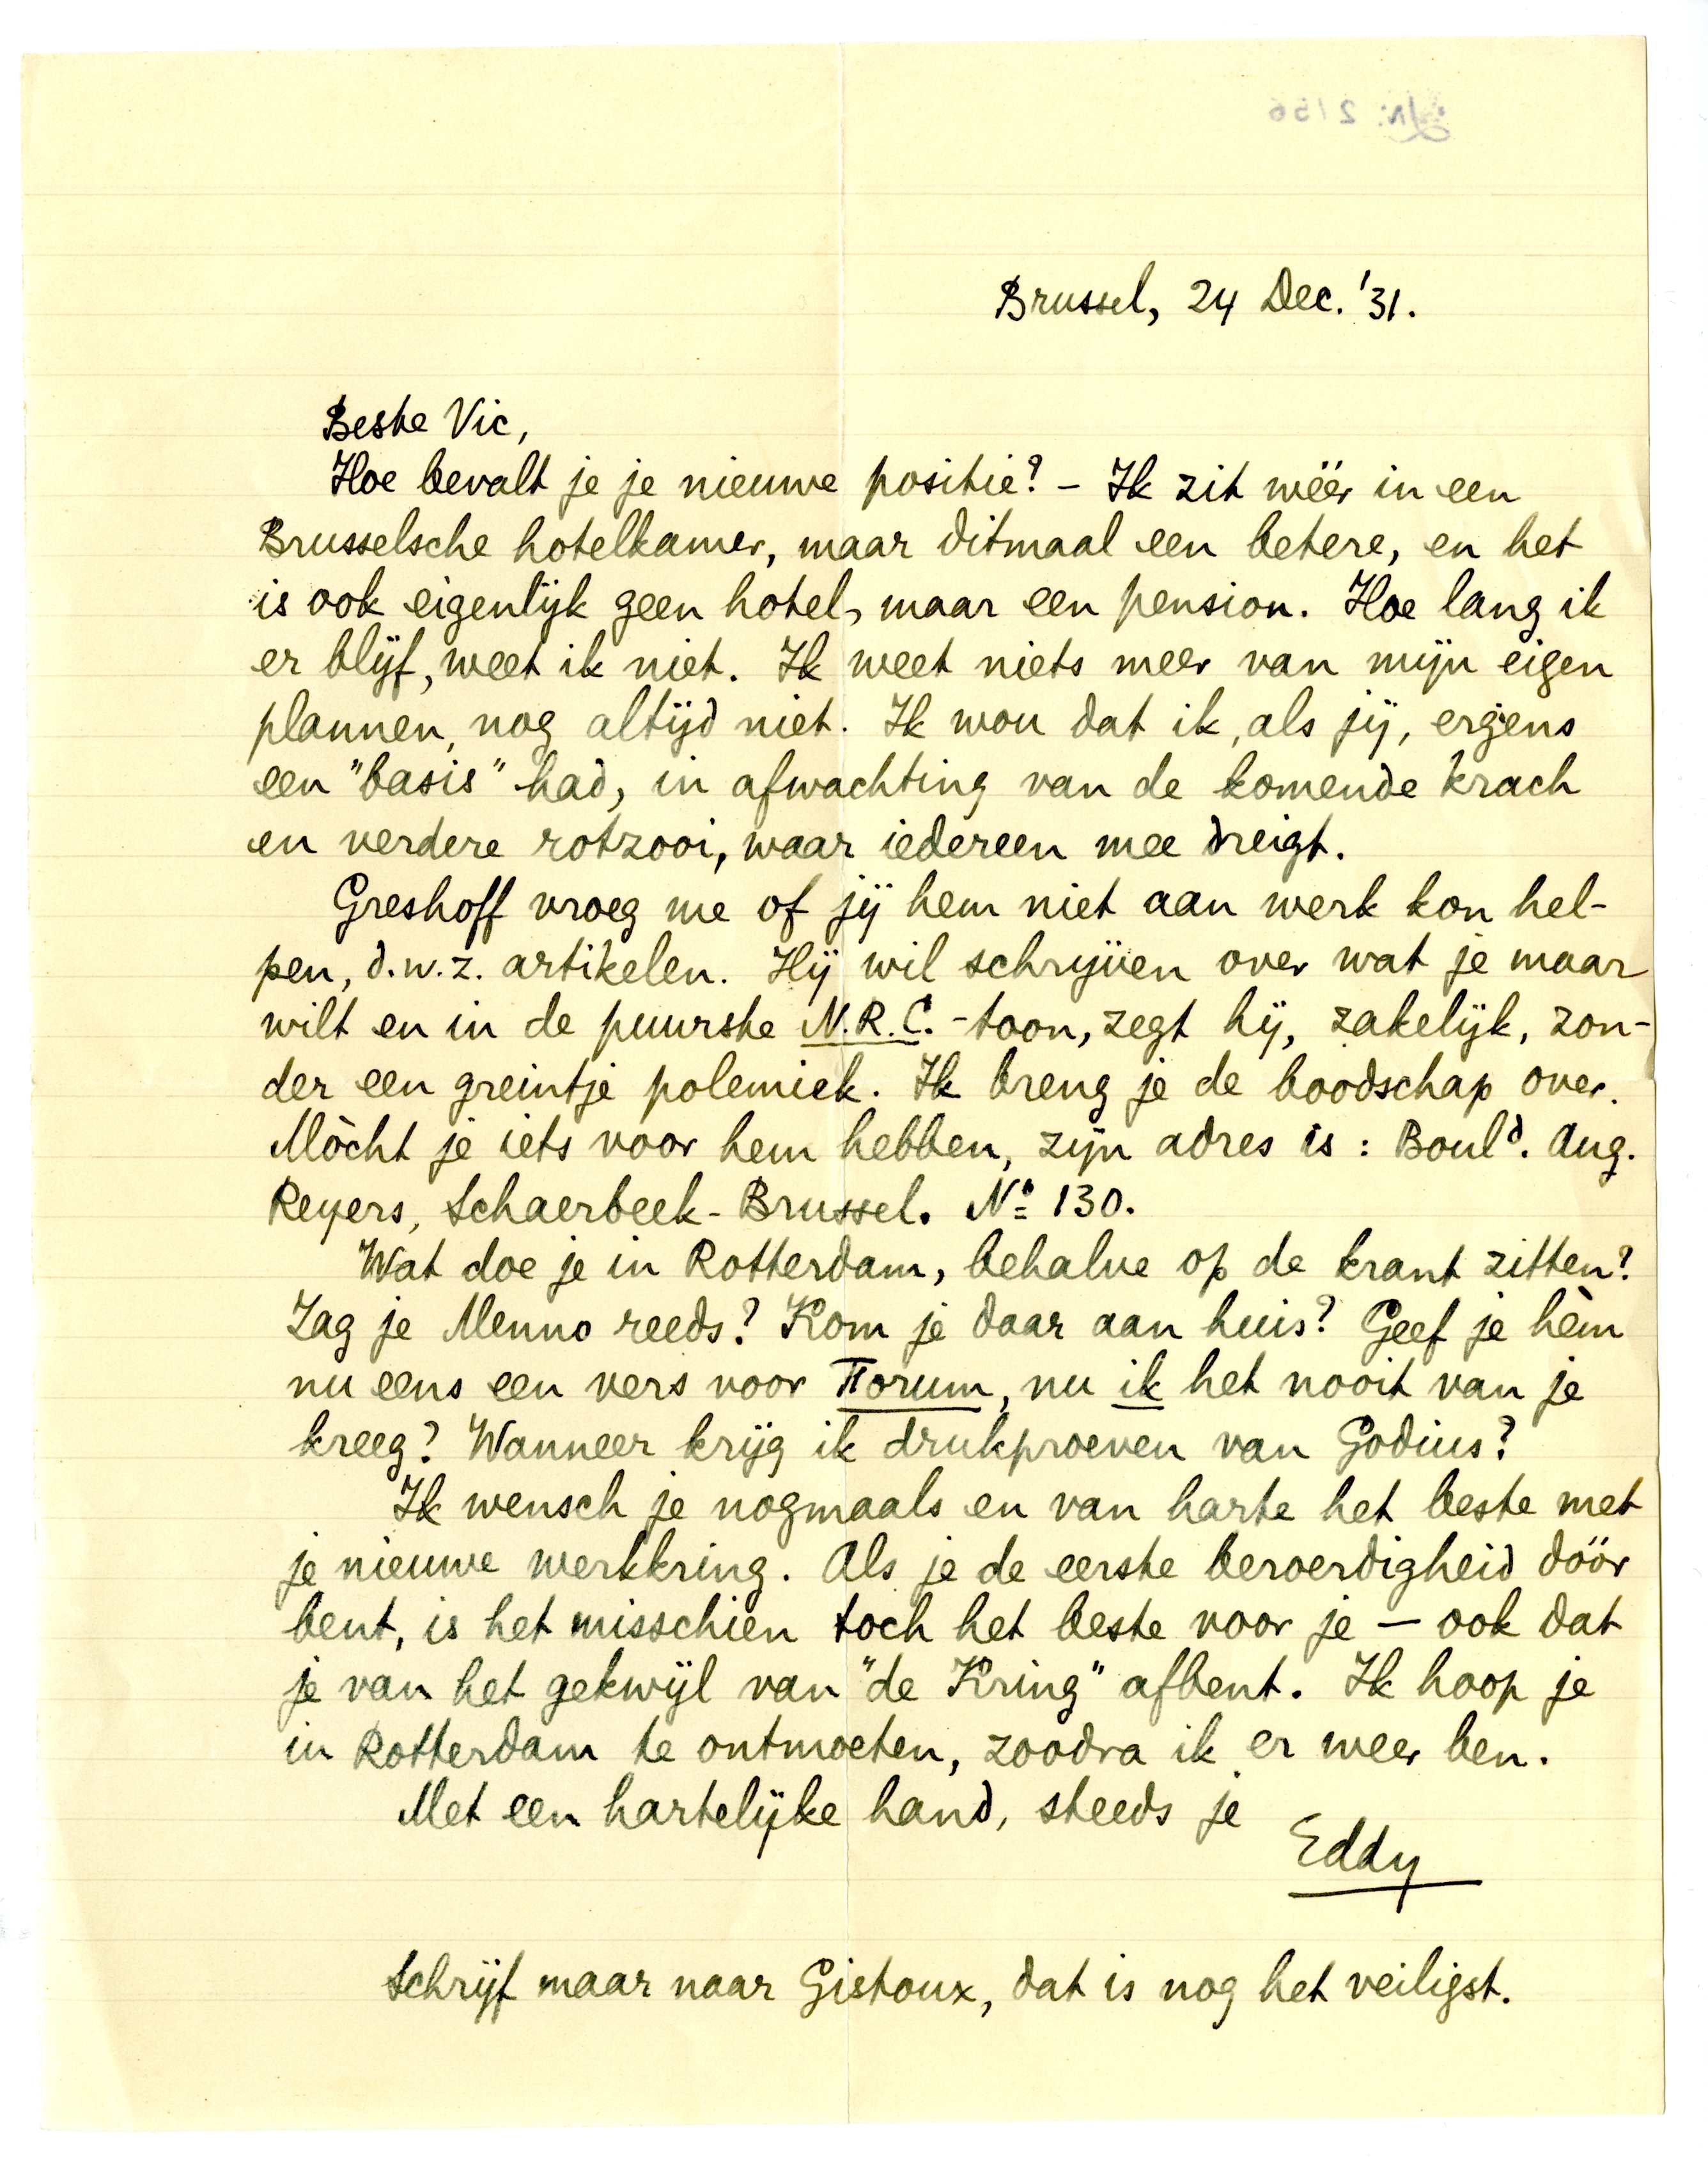 Brussel, 24 Dec. '31.
Beste Vic,
Hoe bevalt je je nieuwe positie? – Ik zit wéér in een
Brusselsche hotelkamer, maar ditmaal een betere, en het
is ook eigenlijk geen hotel, maar een pension. Hoe lang ik
er blijf, weet ik niet. Ik weet niets meer van mijn eigen
plannen, nog altijd niet. Ik wou dat ik, als jij, ergens
een "basis" had, in afwachting van de komende krach
en verdere rotzooi, waar iedereen mee dreigt.
Greshoff vroeg me of jij hem niet aan werk kon hel-
pen, d.w.z. artikelen. Hij wil schrijven over wat je maar
wilt en in de puurste N.R.C.-toon, zegt hij, zakelijk, zon-
der een greintje polemiek. Ik breng je de boodschap over.
Mòcht je iets voor hem hebben, zijn adres is: Bould. Aug.
Reyers, Schaerbeek-Brussel. No 130.
Wat doe je in Rotterdam, behalve op de krant zitten?
Zag je Menno reeds? Kom je daar aan huis? Geef je hèm
nu eens een vers voor Forum, nu ik het nooit van je
kreeg? Wanneer krijg ik drukproeven van Godius?
Ik wensch je nogmaals en van harte het beste met
je nieuwe werkkring. Als je de eerste beroerdigheid dóór
bent, is het misschien toch het beste voor je – ook dat
je van het gekwijl van "de Kring" afbent. Ik hoop je
in Rotterdam te ontmoeten, zoodra ik er weer ben.
Met een hartelijke hand, steeds je
Eddy
Schrijf maar naar Gistoux, dat is nog het veiligst.